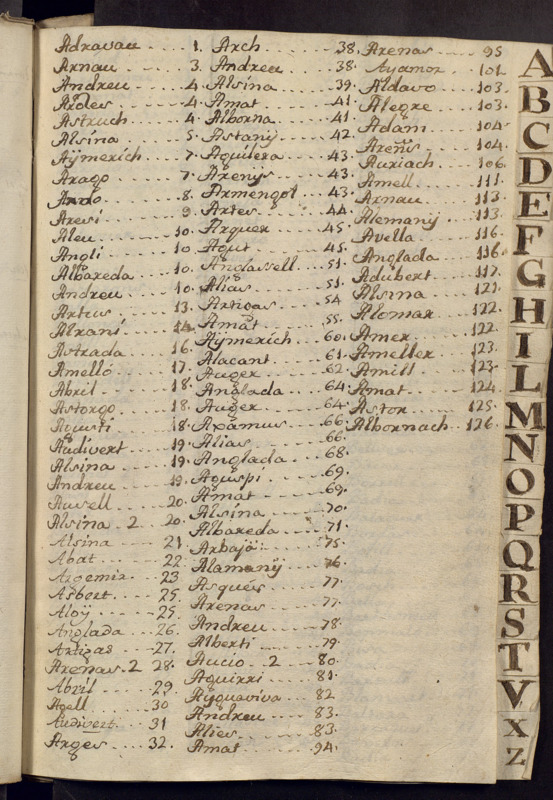 Adravau 1.
Arnau 3.
Andreu 4.
Aroles 4.
Astruch 4.
Alsina 5.
Aymerich 7.
Arago 7.
Arnó 8.
Aresi 9.
Aleu 10.
Angli 10.
Albareda 10.
Andreu 10.
Artus 13.
Alrani 14.
Astrada 16.
Amelló 17.
Abril 18.
Astorgo 18.
Agusti 18.
Audivert 19.
Alsina 19.
Andreu 19.
Auvell 20.
Alsina 2 20.
Alsina 21
Abat 22
Argemir 23
Asbert 25
Aloÿ 25
Anglada 26.
Artigas 27.
Arenas 2 28.
Abril 29
Agell 30
Audivert 31
Arges 32.
Arch 38.
Andreu 38.
Alsina 39.
Amat 41.
Alborna 41.
Astanÿ 42.
Aguilera 43.
Arenÿs 43.
Armengol 43.
Artes 44.
Arquer 45.
Agut 45.
Andavell 51.
Alias 51.
Artigas 54
Amat 55.
Aÿmerich 60.
Alacant 61.
Auger 62.
Anglada 64.
Auger 64.
Axamus 66.
Alias 66.
Anglada 68.
Aguspi 69.
Amat 69.
Alsina 70.
Albareda 71.
Arbajó 75.
Alamanÿ 76.
Asques 77.
Arenas 77.
Andreu 78.
Alberti 79.
Aucio 2 80.
Aguirri 81.
Ayguaviva 82
Andreu 83.
Alies 83.
Amat 94.
Arenas 95
Ayamor 101
Aldavo 103.
Alegre 103.
Adam 104.
Areñs 104.
Auriach 106.
Amell 111.
Arnau 113.
Alemanÿ 113.
Avella 116.
Anglada 116.
Adubert 117.
Alsina 121.
Alomar 122.
Amer 122.
Ameller 123.
Amill 123.
Amat 124.
Astor 125.
Albornach 126.
A
B
C
D
E
F
G
H
I
L
M
N
O
P
Q
R
S
T
V
X
Z